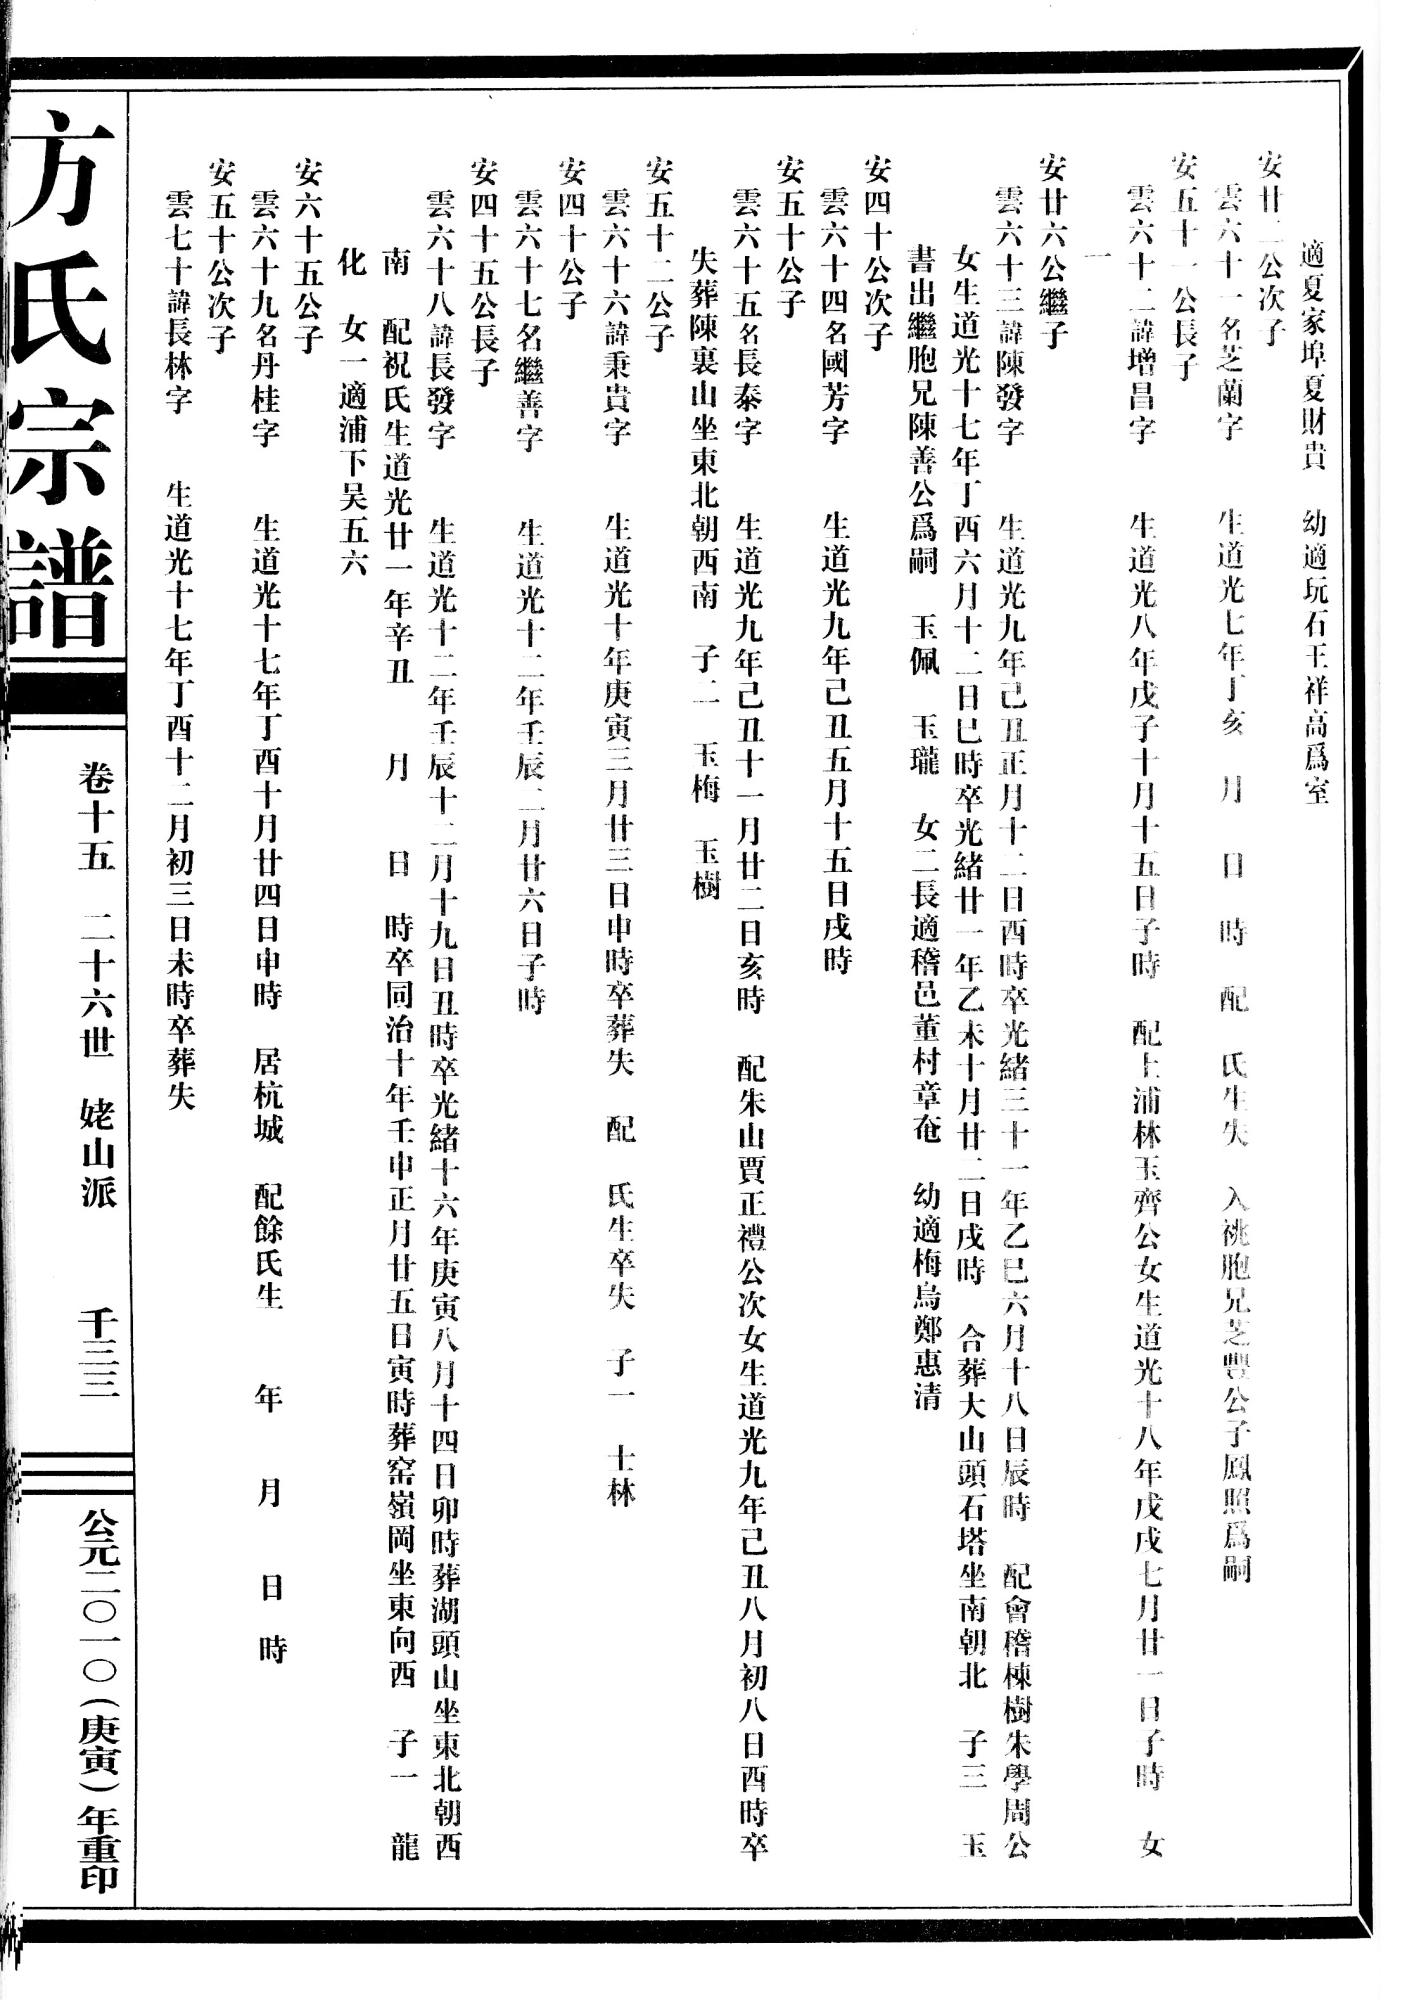 適夏家埠夏財貴　幼適玩石王祥高爲室
安廿二公次子
雲六十一名芝蘭字　生道光七年丁亥　月　日　時　配　氏生失　入祧胞兄芝豐公子鳳照爲嗣
安五十一公長子
雲六十二諱增昌字　生道光八年戊子十月十五日子時　配上浦林玉齊公女生道光十八年戊戌七月廿一日子時　女
一
安廿六公繼子
雲六十三諱陳發字　生道光九年己丑正月十二日酉時卒光緒三十一年乙巳六月十八日辰時　配會稽棟樹朱學周公
女生道光十七年丁酉六月十二日巳時卒光緒廿一年乙未十月廿二日戌時　合葬大山頭石塔坐南朝北　子三　玉
書出繼胞兄陳善公爲嗣　玉佩　玉瓏　女二長適稽邑董村章奄　幼適梅烏鄭惠清
安四十公次子
雲六十四名國芳字　生道光九年己丑五月十五日戌時
安五十公子
雲六十五名長泰字　生道光九年己丑十一月廿二日亥時　配朱山賈正禮公次女生道光九年己丑八月初八日酉時卒
失葬陳裏山坐東北朝西南　子二　玉梅　玉樹
安五十二公子
雲六十六諱秉貴字　生道光十年庚寅三月廿三日申時卒葬失　配　氏生卒失　子一　士林
安四十公子
雲六十七名繼善字　生道光十二年壬辰二月廿六日子時
安四十五公長子
雲六十八諱長發字　生道光十二年壬辰十二月十九日丑時卒光緒十六年庚寅八月十四日卯時葬湖頭山坐東北朝西
南　配祝氏生道光廿一年辛丑　月　日　時卒同治十年壬申正月廿五日寅時葬窑嶺岡坐東向西　子一　龍
化　女一適浦下吴五六
安六十五公子
雲六十九名丹桂字　生道光十七年丁酉十月廿四日申時　居杭城　配餘氏生　年　月　日　時
安五十公次子
雲七十諱長林字　生道光十七年丁酉十二月初三日未時卒葬失
方氏宗譜
卷十五　二十六世　姥山派　千三三
公元二〇一〇（庚寅）年重印